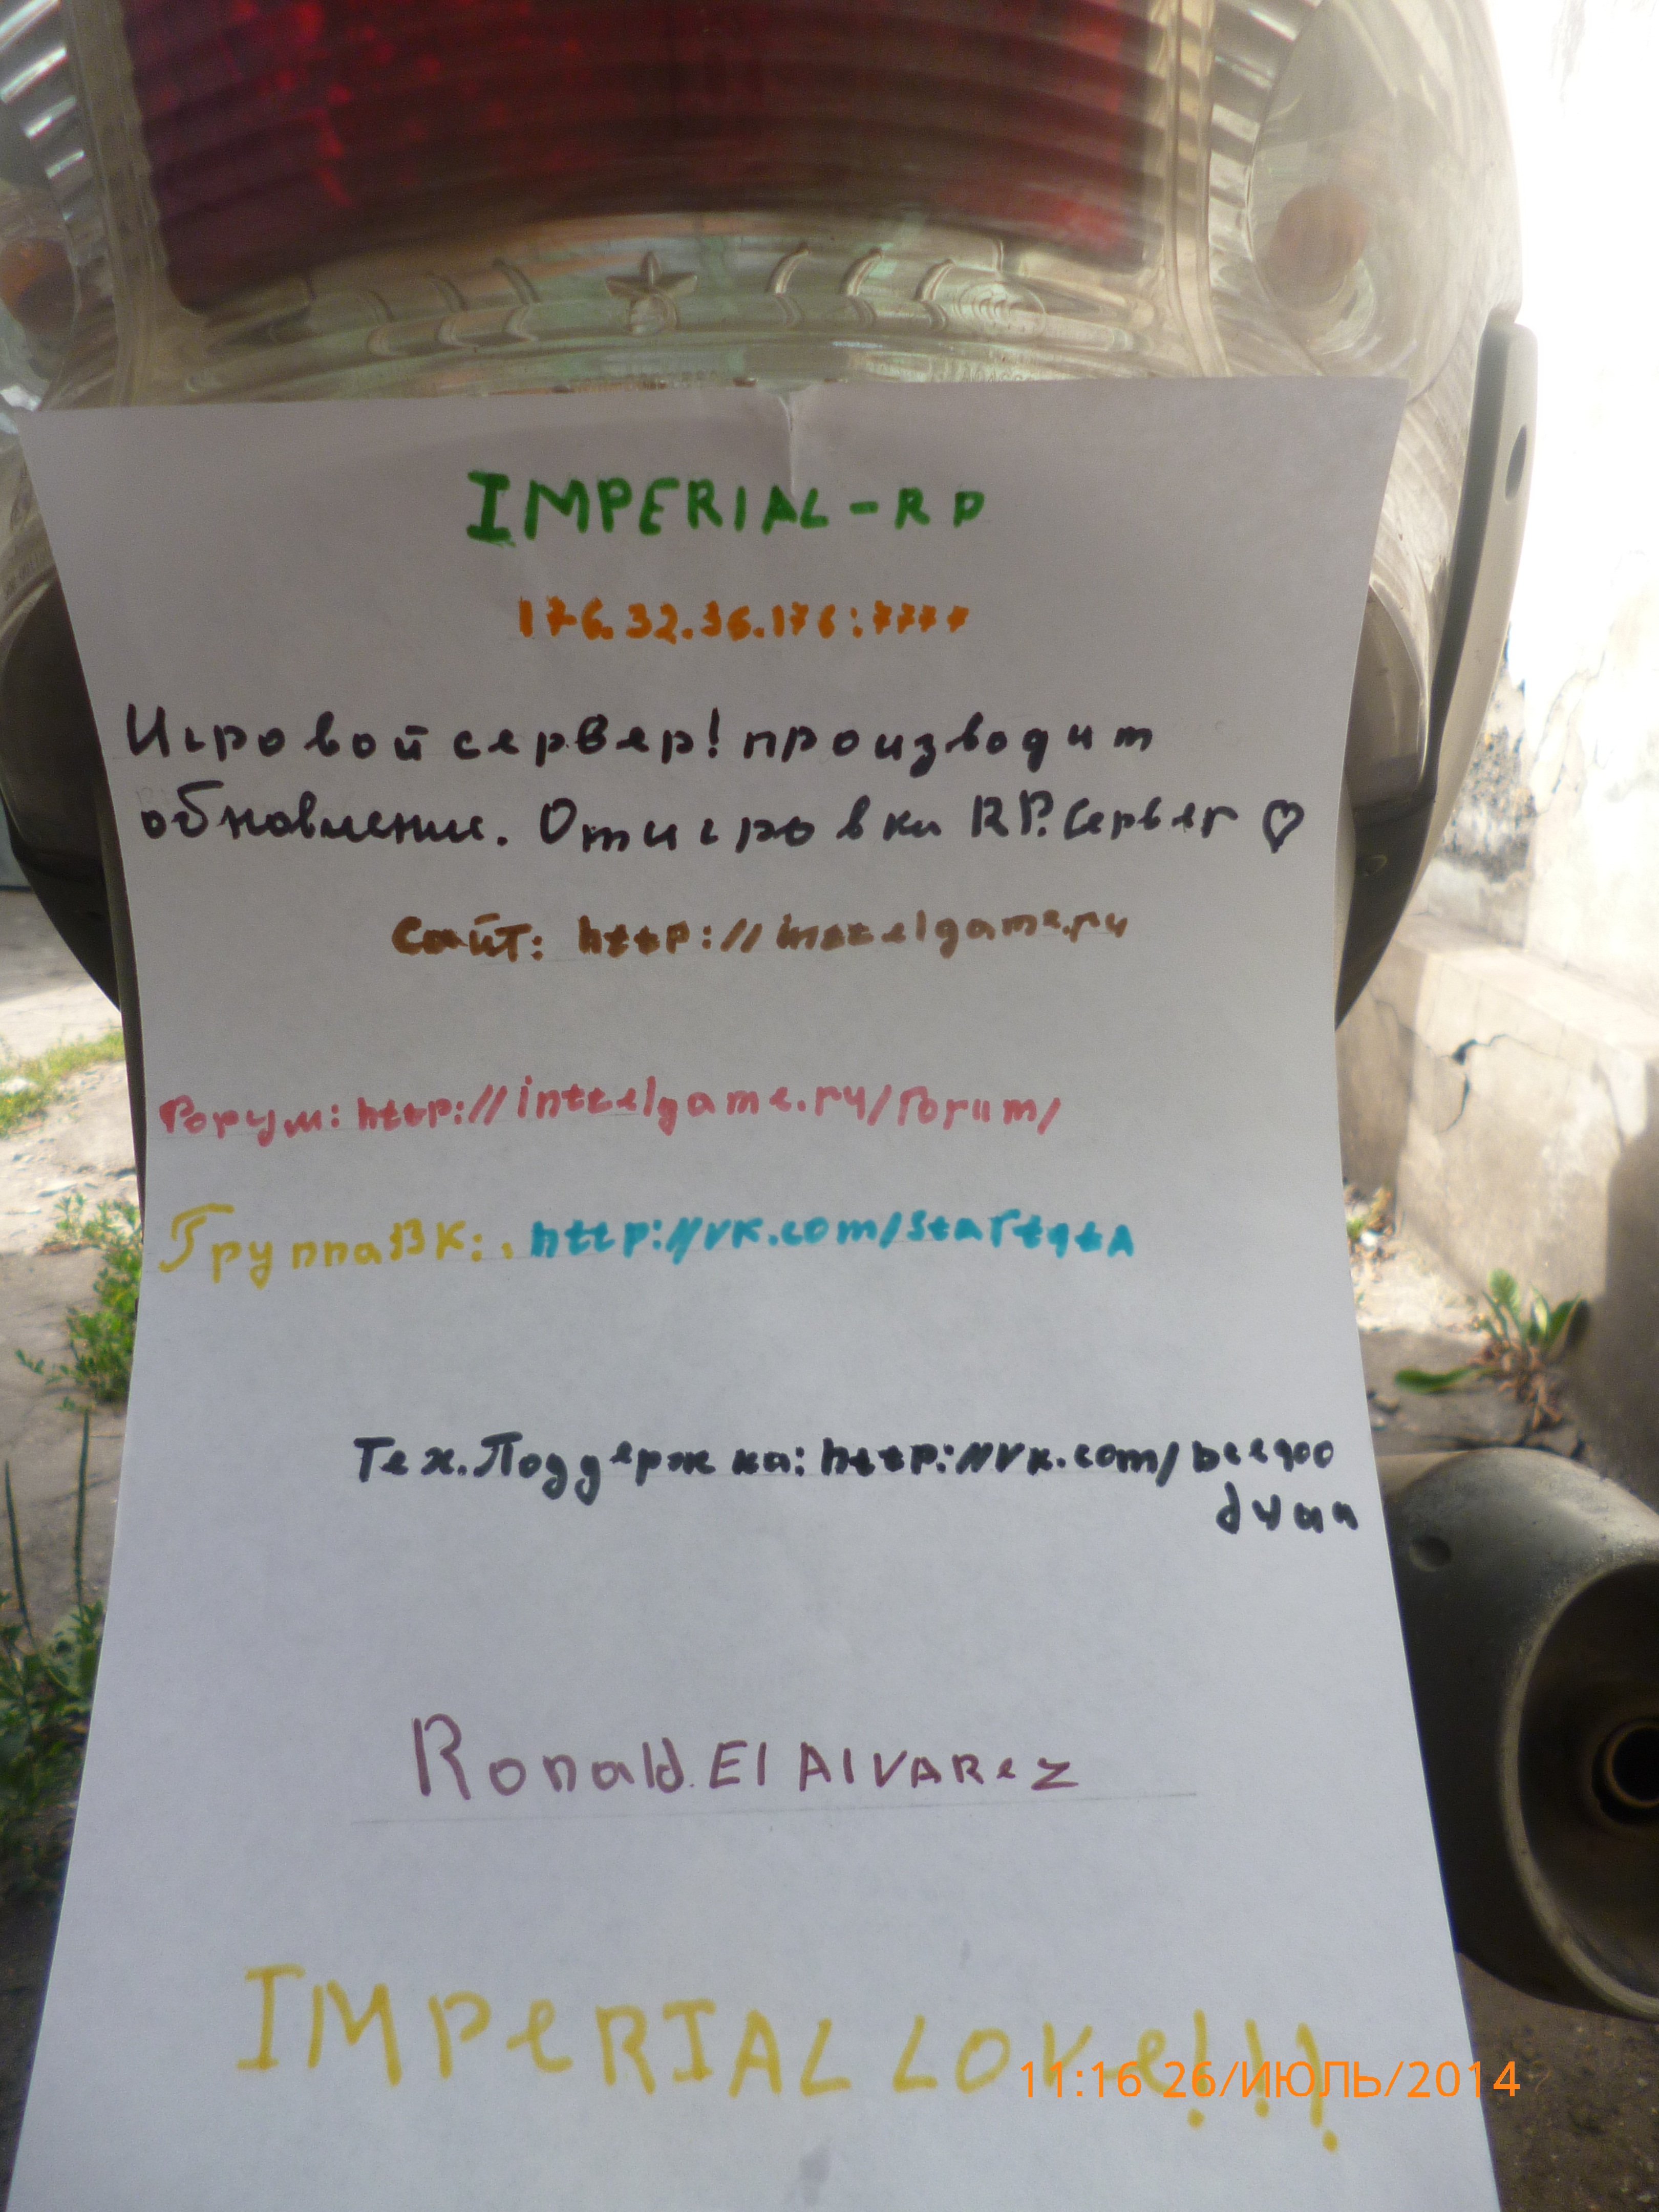 IMPERIAL-RP
176.32.36.176:7777
Игровой сервер! производит
обновление. Отигровки RP.Сервер ♡
Сайт: http://inttelgame.ru
Форум: http://inttelgame.ru/forum/
Группа ВК: http://vk.com/startgta
Тех.Поддержка: http://vk.com/
Ronald.El Alvarez
IMPeRIAL LOVe!!!
11:16 26/ИЮЛЬ/2014